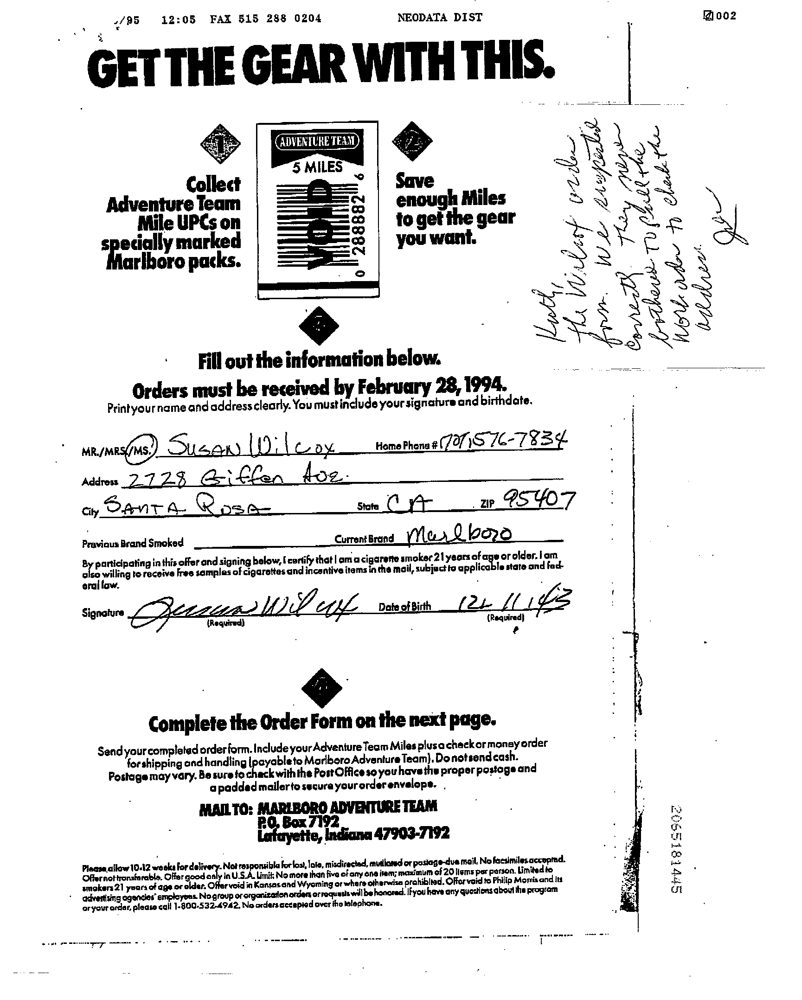 /95 12:05 FAX 515 288 0204 NEODATA DIST 002
GET THE GEAR WITH THIS.
1
Collect
Adventure Team
Mile UPCs on
specially marked
Marlboro packs.
ADVENTURE TEAM
5 MILES
VOID
0 288882 6
2
Save
enough Miles
to get the gear
you want.
the Wilcox order
form. We
correctly. They never
bothered to pull the
work order to check the
address.
3
Fill out the information below.
Orders must be received by February 28, 1994.
Print your name and address clearly. You must include your signature and birthdate.
MR./MRS./MS. SUSAN WilCox Home Phone # (707) 576-7834
Address 2728 Giffen Ave.
City SANTA ROSA State CA ZIP 95407
Previous Brand Smoked Current Brand Marlboro
By participating in this offer and signing below, I certify that I am a cigarette smoker 21 years of age or older. I am
also willing to receive free samples of cigarettes and incentive items in the mail, subject to applicable state and fed-
eral law.
Signature Susan Wilcox Date of Birth 12 11 43
(Required) (Required)
4
Complete the Order Form on the next page.
Send your completed order form. Include your Adventure Team Miles plus a check or money order
for shipping and handling (payable to Marlboro Adventure Team). Do not send cash.
Postage may vary. Be sure to check with the Post Office so you have the proper postage and
a padded mailer to secure your order envelope.
MAIL TO: MARLBORO ADVENTURE TEAM
P.O. Box 7192
Lafayette, Indiana 47903-7192
Please allow 10-12 weeks for delivery. Not responsible for lost, late, misdirected, mutilated or postage-due mail. No facsimiles accepted.
Offer not transferable. Offer good only in U.S.A. Limit: No more than five of any one item; maximum of 20 items per person. Limited to
smokers 21 years of age or older. Offer void in Kansas and Wyoming or where otherwise prohibited. Offer void to Philip Morris and its
advertising agencies' employees. No group or organization orders or requests will be honored. If you have any questions about the program
or your order, please call 1-800-532-4942. No orders accepted over the telephone.
2065181445